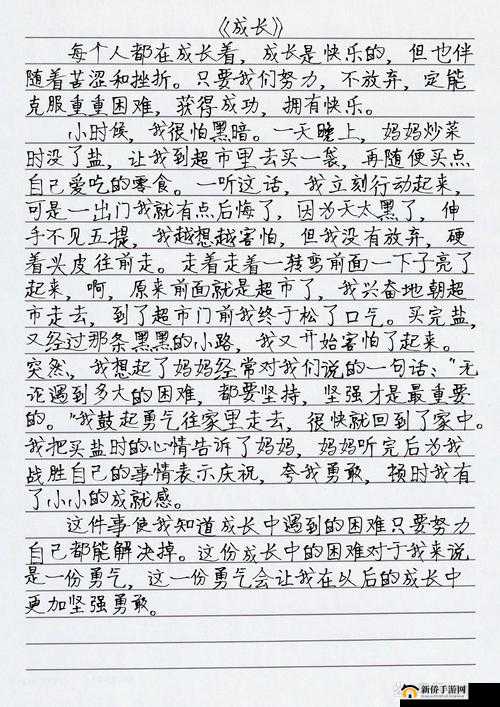 《成长》
每个人都在成长着，成长是快乐的，但也伴
随着苦涩和挫折。只要我们努力，不放弃，定能
克服重重困难，获得成功，拥有快乐。
小时候，我很怕黑暗。一天晚上，妈妈炒菜
时没了盐，让我到超市里去买一袋，再随便买点
自己爱吃的零食。一听这话，我立刻行动起来，
可是一出门我就有点后悔了，因为天太黑了，伸
手不见五提，我越想越害怕，但我没有放弃，硬
着头皮往前走。走着走着一转弯前面一下子亮了
起来，啊，原来前面就是超市了，我兴奋地朝超
市走去，到了超市门前我终于松了口气。买完盐，
又经过那条黑黑的小路，我又开始害怕了起来。
突然，我想起了妈妈经常对我们说的一句话："无
论遇到多大的困难，都要坚持，坚强才是最重要
的。"我鼓起勇气往家里走去，很快就回到了家中。
我把买盐时的心情告诉了妈妈，妈妈听完后为我
战胜自己的事情表示庆祝，夸我勇敢，顿时我有
了小小的成就感。
这件事使我知道成长中遇到的困难只要努力
自己都能解决掉。这份成长中的困难对于我来说
是一份勇气，这一份勇气会让我在以后的成长中
更加坚强勇敢。
新侨手游网